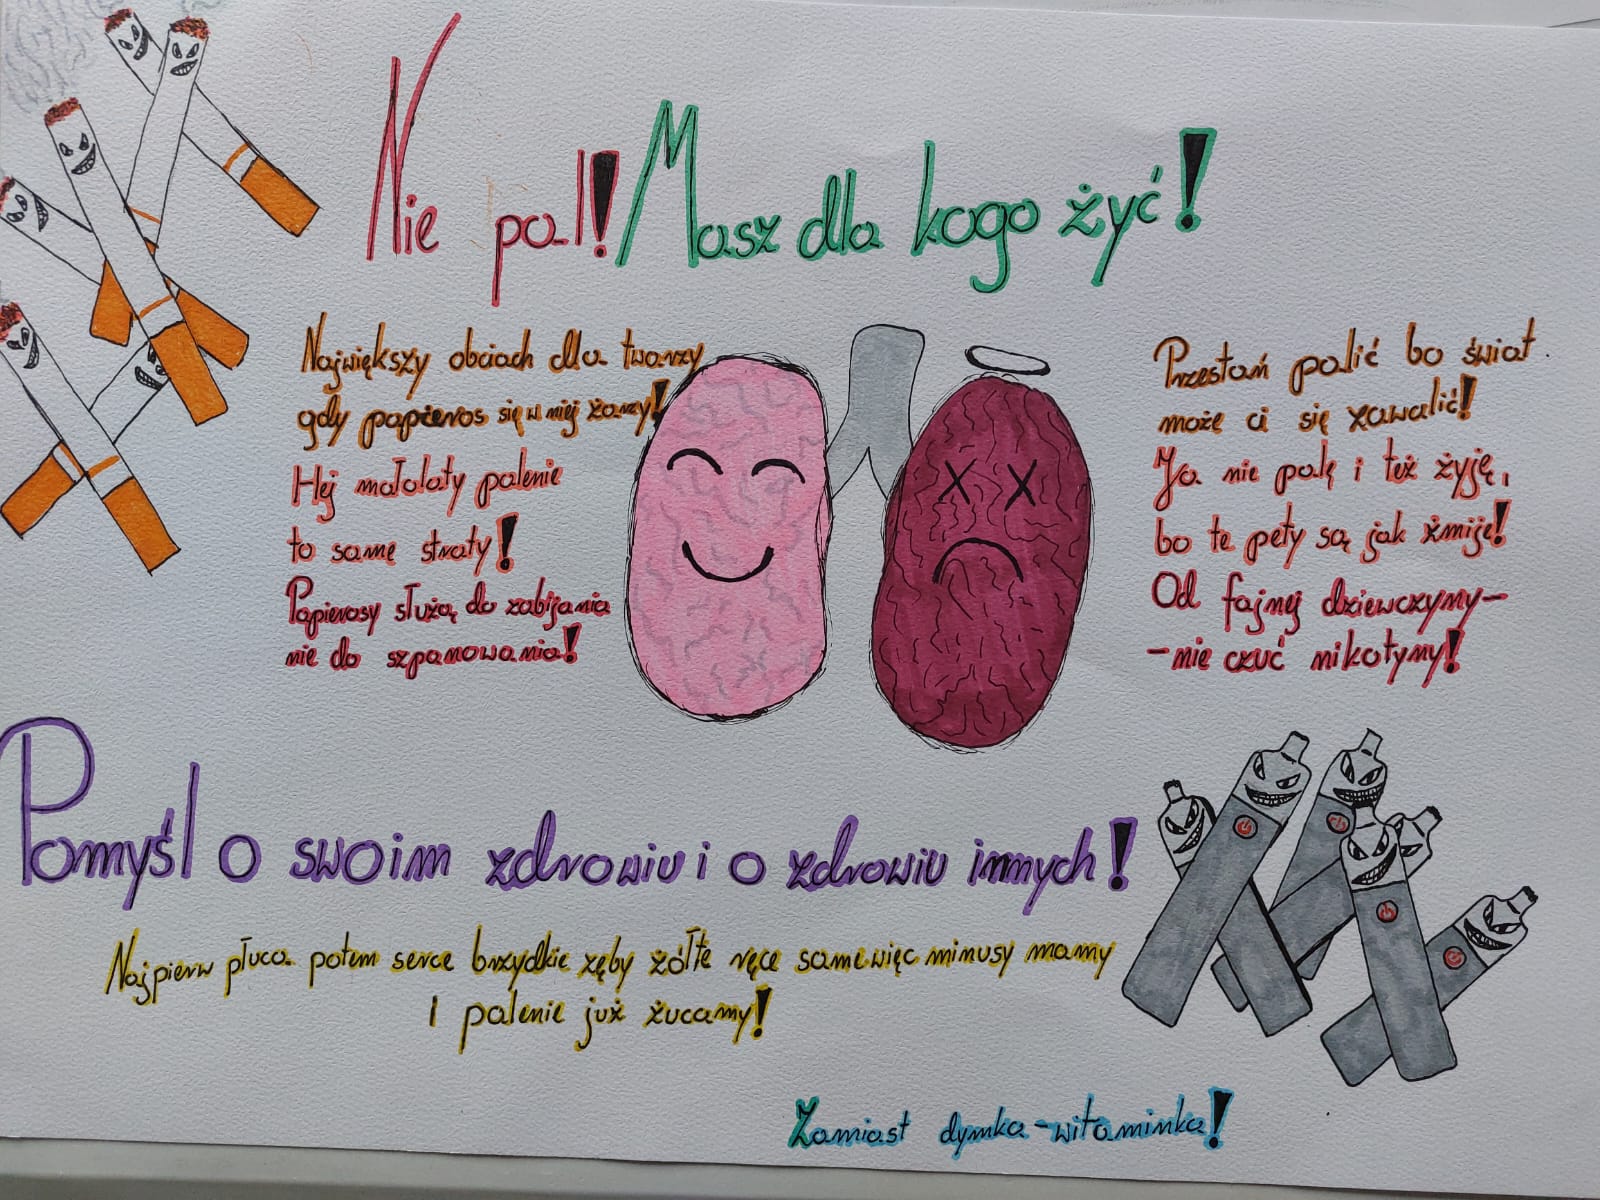 Nie pal! Masz dla kogo żyć!
Największy obciach dla twarzy
gdy papieros się w niej żarzy!
Hej małolaty palenie
to same straty!
Papierosy służą do zabijania
nie do szpanowania!
Przestań palić bo świat
może ci się zawalić!
Ja nie palę i też żyję,
bo te pety są jak żmije!
Od fajnej dziewczyny-
-nie czuć nikotyny!
Pomyśl o swoim zdrowiu i o zdrowiu innych!
Najpierw płuca potem serce brzydkie zęby żółte ręce same więc minusy mamy
I palenie już żucamy!
Zamiast dymka-witaminka!